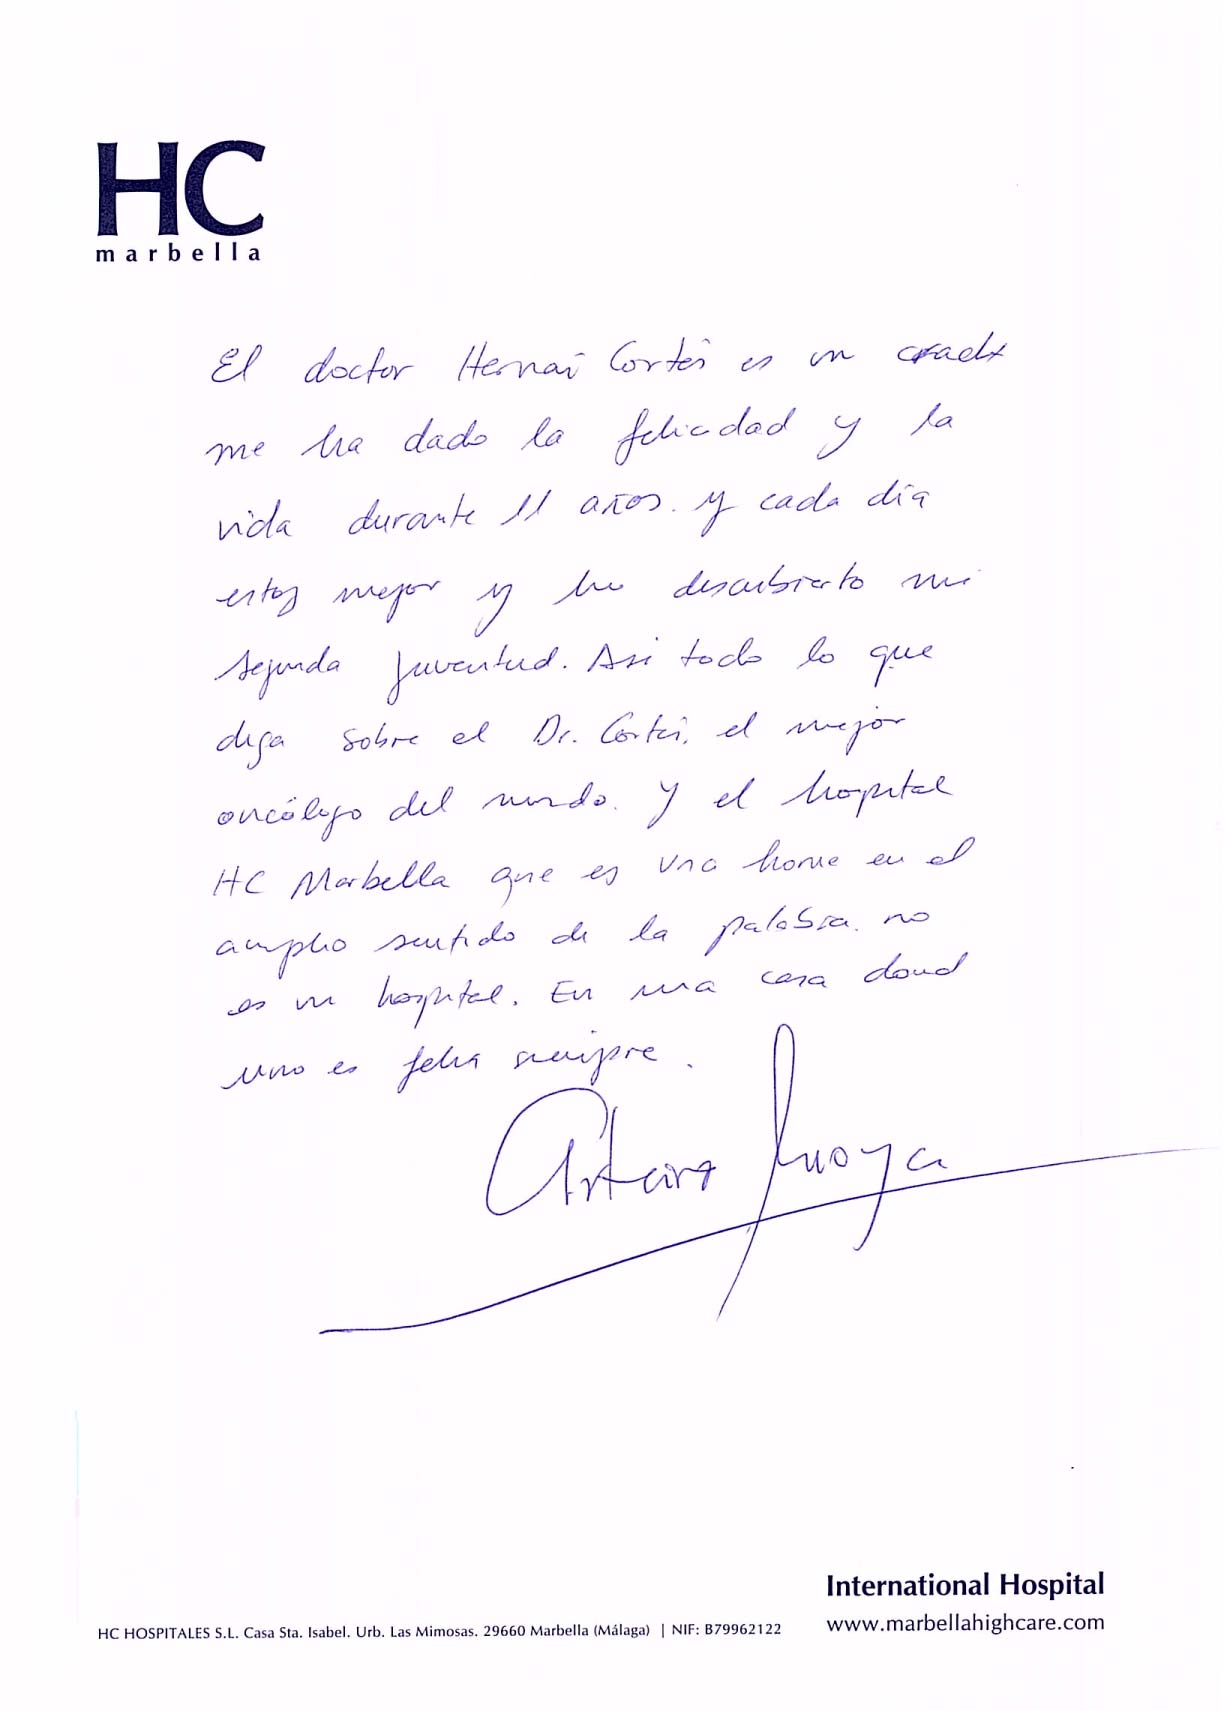 HC
marbella
El doctor Hernán Cortés es un crack
me ha dado la felicidad y la
vida durante 11 años. y cada día
estoy mejor y he descubierto mi
segunda juventud. Asi todo lo que
diga sobre el Dr. Cortés, el mejor
oncólogo del mundo. y el hospital
HC Marbella que es una home en el
amplio sentido de la palabra. no
es un hospital. En una casa dond
uno es feliz siempre.
Arturo
International Hospital
www.marbellahighcare.com
HC HOSPITALES S.L. Casa Sta. Isabel. Urb. Las Mimosas. 29660 Marbella (Málaga) | NIF: B79962122